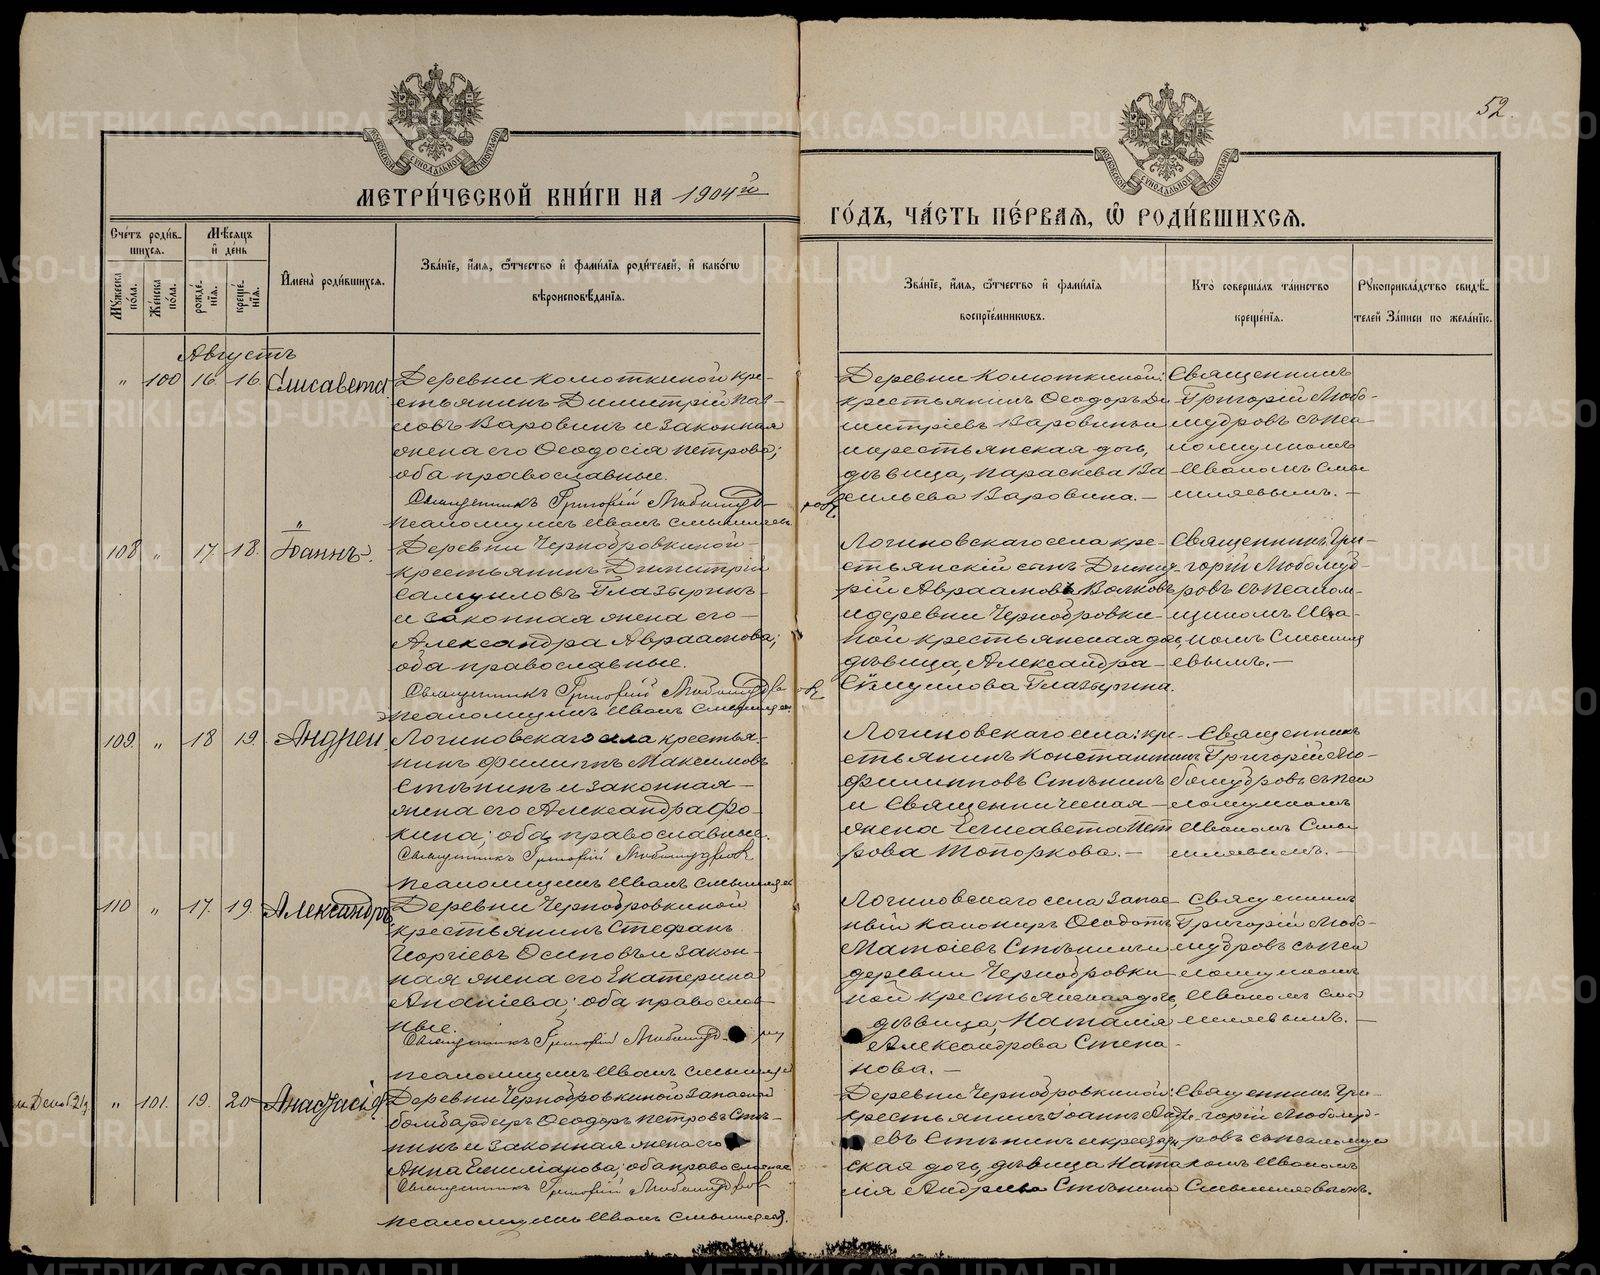 52.
МЕТРИ́ЧЕСКОЙ КНИ́ГИ НА 1904й
ГО́ДЪ, ЧА́СТЬ ПЕ́РВАЯ, Ѡ РОДИ́ВШИХСЯ.
Сче́тъ роди́вшихся.
Мꙋ́жеска по́ла.
Же́нска по́ла.
Мѣ́сяцъ и҆ де́нь
рожде́нїя.
креще́нїя.
И҆мена̀ роди́вшихся.
Зва́нїе, и҆́мя, ѻ҆́тчество и҆ фами́лїя роди́телей, и҆ како́гѡ
вѣроисповѣ́данїя.
Зва́нїе, и҆́мя, ѻ҆́тчество и҆ фами́лїя
воспрїе́мникѡвъ.
Кто̀ соверша́лъ та́инство
креще́нїя.
Рꙋкоприкла́дство свидѣ́телей за́писи по жела́нїю.
Августъ
" 100 16. 16. Елисавета.
Деревни Комоткиной кре-
стьянинъ Димитрій Пав-
ловъ Варовинъ и законная
жена его Ѳеодосія Петрова;
оба православные.
Священникъ Григорій Любомудровъ
Псаломщикъ Иванъ Смышляевъ
Деревни Комоткиной:
крестьянинъ Ѳеодоръ Ди-
митріевъ Варовинъ и
крестьянская дочь,
дѣвица, Параскева Ва-
сильева Варовина. –
Священникъ
Григорій Любо-
мудровъ съ пса-
ломщикомъ
Иваномъ Смы-
шляевымъ. –
108 " 17. 18. Іоаннъ.
Деревни Чернобровкиной
крестьянинъ Димитрій
Самуиловъ Глазыринъ
и законная жена его
Александра Авраамова;
оба православные.
Священникъ Григорій Любомудровъ
Псаломщикъ Иванъ Смышляевъ
Логиновскаго села кре-
стьянскій сынъ Димит-
рій Авраамовъ Волковъ
и деревни Чернобровки-
ной крестьянская дочь,
дѣвица, Александра
Самуилова Глазырина.
Священникъ Гри-
горій Любомуд-
ровъ съ псалом-
щикомъ Ива-
номъ Смышля-
евымъ. –
109. " 18 19. Андрей
Логиновскаго села крестья-
нинъ Филиппъ Максимовъ
Стѣнинъ и законная
жена его Александра Фо-
кина; оба православные.
Священникъ Григорій Любомудровъ
Псаломщикъ Иванъ Смышляевъ
Логиновскаго села: кре-
стьянинъ Константинъ
Филипповъ Стѣнинъ
и священническая
жена Елисавета Пет-
рова Топоркова. –
Священникъ
Григорій Лю-
бомудровъ съ пса-
ломщикомъ
Иваномъ Смы-
шляевымъ. –
110 " 17. 19. Александръ
Деревни Чернобровкиной
крестьянинъ Стефанъ
Георгіевъ Осиповъ и закон-
ная жена его Екатерина
Ананіева; оба православ-
ные.
Священникъ Григорій Любомудровъ
Псаломщикъ Иванъ Смышляевъ
Логиновскаго села запас-
ный канониръ Ѳеодотъ
Матѳіевъ Стѣнинъ и
деревни Чернобровки-
ной крестьянская дочь,
дѣвица, Наталія
Александрова Степа-
нова. –
Священникъ
Григорій Любо-
мудровъ съ пса-
ломщикомъ
Иваномъ Смы-
шляевымъ. –
" 101. 19. 20 Анастасія
Деревни Чернобровкиной запасной
бомбардиръ Ѳеодоръ Петровъ Стѣ-
нинъ и законная жена его
Анна Емиліанова; оба православные
Священникъ Григорій Любомудровъ
Псаломщикъ Иванъ Смышляевъ.
Деревни Чернобровкиной:
крестьянинъ Іоаннъ Андре-
евъ Стѣнинъ и крестьян-
ская дочь, дѣвица Ната-
лія Андреева Стѣнина
Священникъ Гри-
горій Любомуд-
ровъ съ псаломщи-
комъ Иваномъ
Смышляевымъ.
METRIKI.GASO-URAL.RU